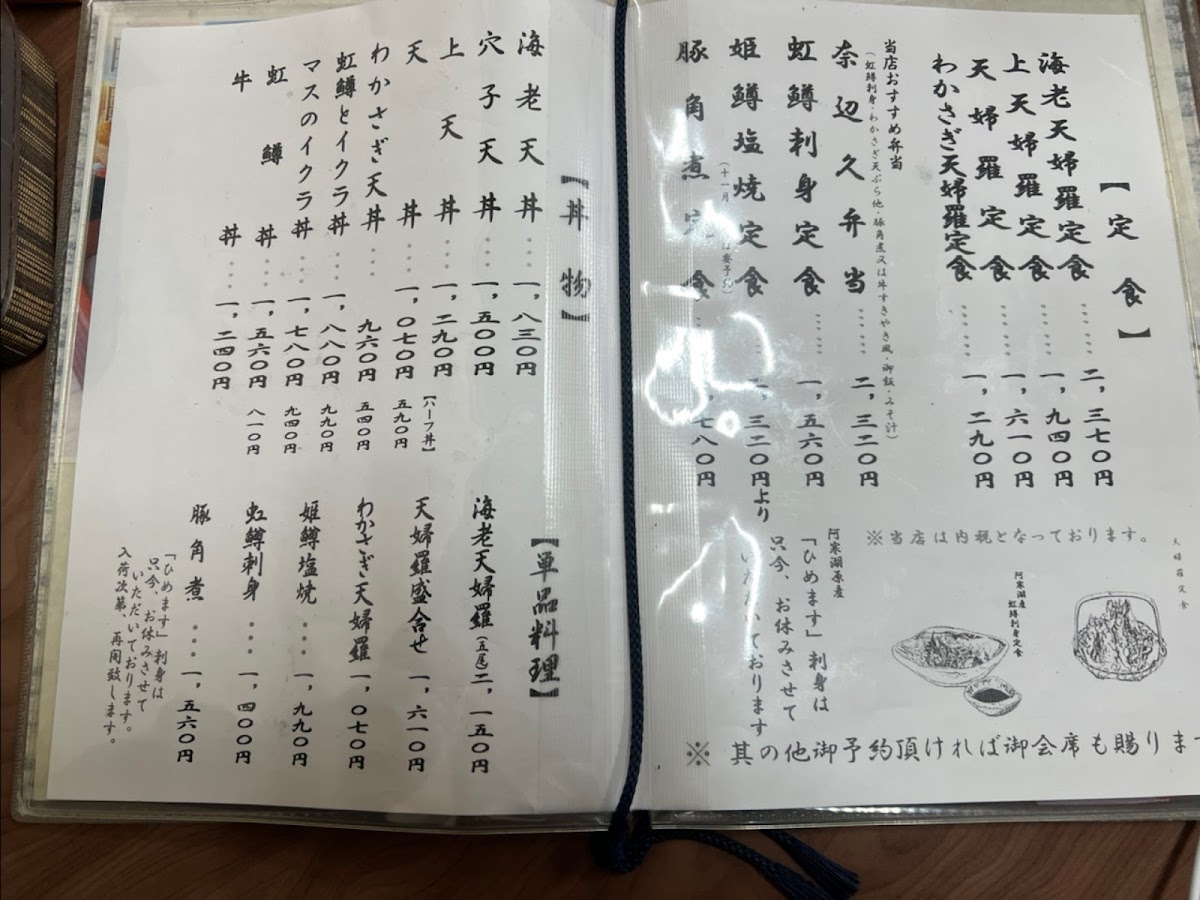 【定食】
海老天婦羅定食……二,三七〇円
上天婦羅定食……一,九四〇円
天婦羅定食……一,六一〇円
わかさぎ天婦羅定食……一,二九〇円
当店おすすめ弁当
(虹鱒刺身・わかさぎ天ぷら他・豚角煮又は牛すきやき風・御飯・みそ汁)
奈辺久弁当……二,三二〇円
虹鱒刺身定食……一,五六〇円
姫鱒塩焼定食……,三二〇円より
(十一月 は要予約)
豚角煮定食……,七八〇円
※当店は内税となっております。
天婦羅定食
阿寒湖産
虹鱒刺身定食
阿寒湖原産
「ひめます」刺身は
只今、お休みさせて
いただいております
※ 其の他御予約頂ければ御会席も賜ります
【丼物】
海老天丼…一,八三〇円
穴子天丼…一,五〇〇円
上天丼…一,二九〇円
【ハーフ丼】
天丼…一,〇七〇円 五九〇円
わかさぎ天丼…九六〇円 五四〇円
虹鱒とイクラ丼…一,八八〇円 九九〇円
マスのイクラ丼…一,七八〇円 九四〇円
虹鱒丼…一,五六〇円 八一〇円
牛丼…一,二四〇円
【単品料理】
海老天婦羅(五尾)二,一五〇円
天婦羅盛合せ 一,六一〇円
わかさぎ天婦羅 一,〇七〇円
姫鱒塩焼…一,九九〇円
虹鱒刺身…一,四〇〇円
豚角煮…一,五六〇円
「ひめます」刺身は
只今、お休みさせて
いただいております。
入荷次第、再開致します。